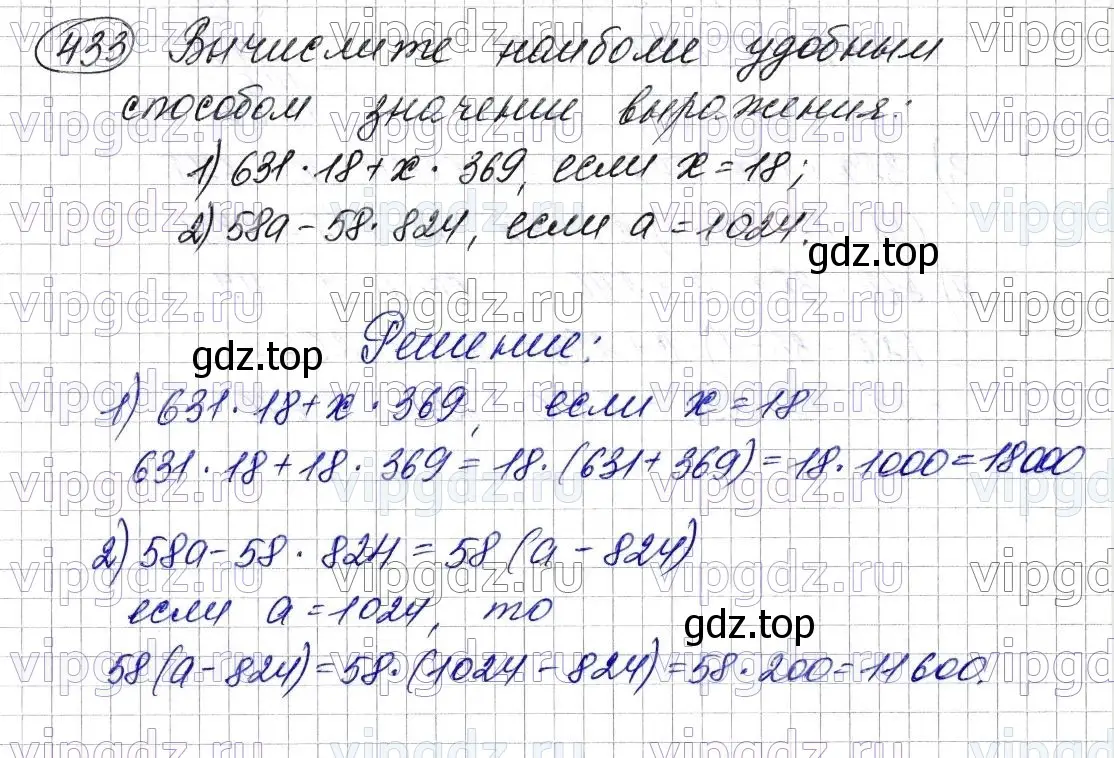 433 Вычислите наиболее удобным
способом значение выражения:
1) 631 · 18 + x · 369, если x = 18;
2) 58a − 58 · 824, если a = 1024.
gdz.top
gdz.top
Решение:
1) 631 · 18 + x · 369, если x = 18
631 · 18 + 18 · 369 = 18 · (631 + 369) = 18 · 1000 = 18000
2) 58a − 58 · 824 = 58 (a − 824)
если a = 1024, то
gdz.top
58 (a − 824) = 58 · (1024 − 824) = 58 · 200 = 11600.
vipgdz.ru